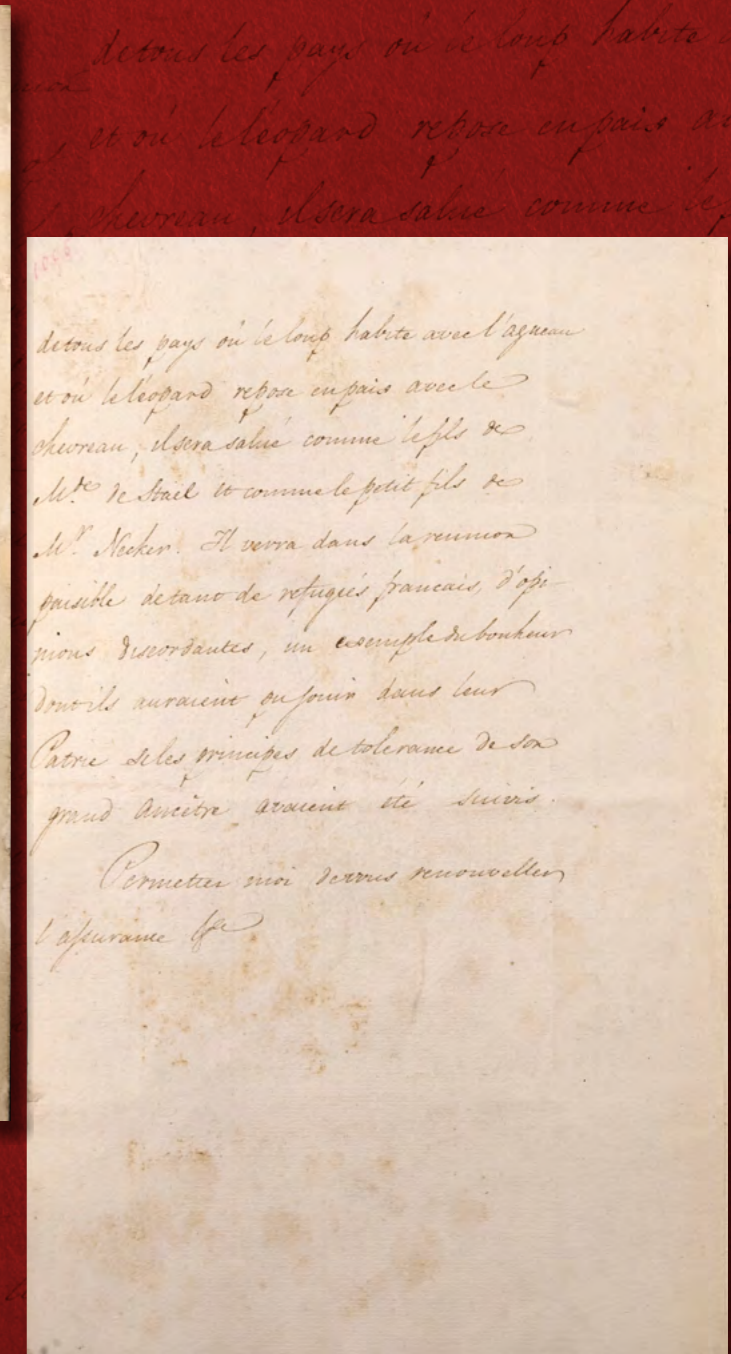 de tous les pays où le loup habite
et où le léopard repose en paix av
chevreau, il sera salué comme le f
de tous les pays où le loup habite avec l'agneau
et où le léopard repose en paix avec le
chevreau, il sera salué comme le fils de
Mde de Stael et comme le petit fils de
Mr Necker. Il verra dans la reunion
paisible de tant de refugiés francais, d'opi-
nions discordantes, un exemple du bonheur
dont ils auraient pu jouir dans leur
Patrie si les principes de tolerance de son
grand Ancêtre avaient été suivis.
Permettez moi de vous renouveller
l'assurance &c